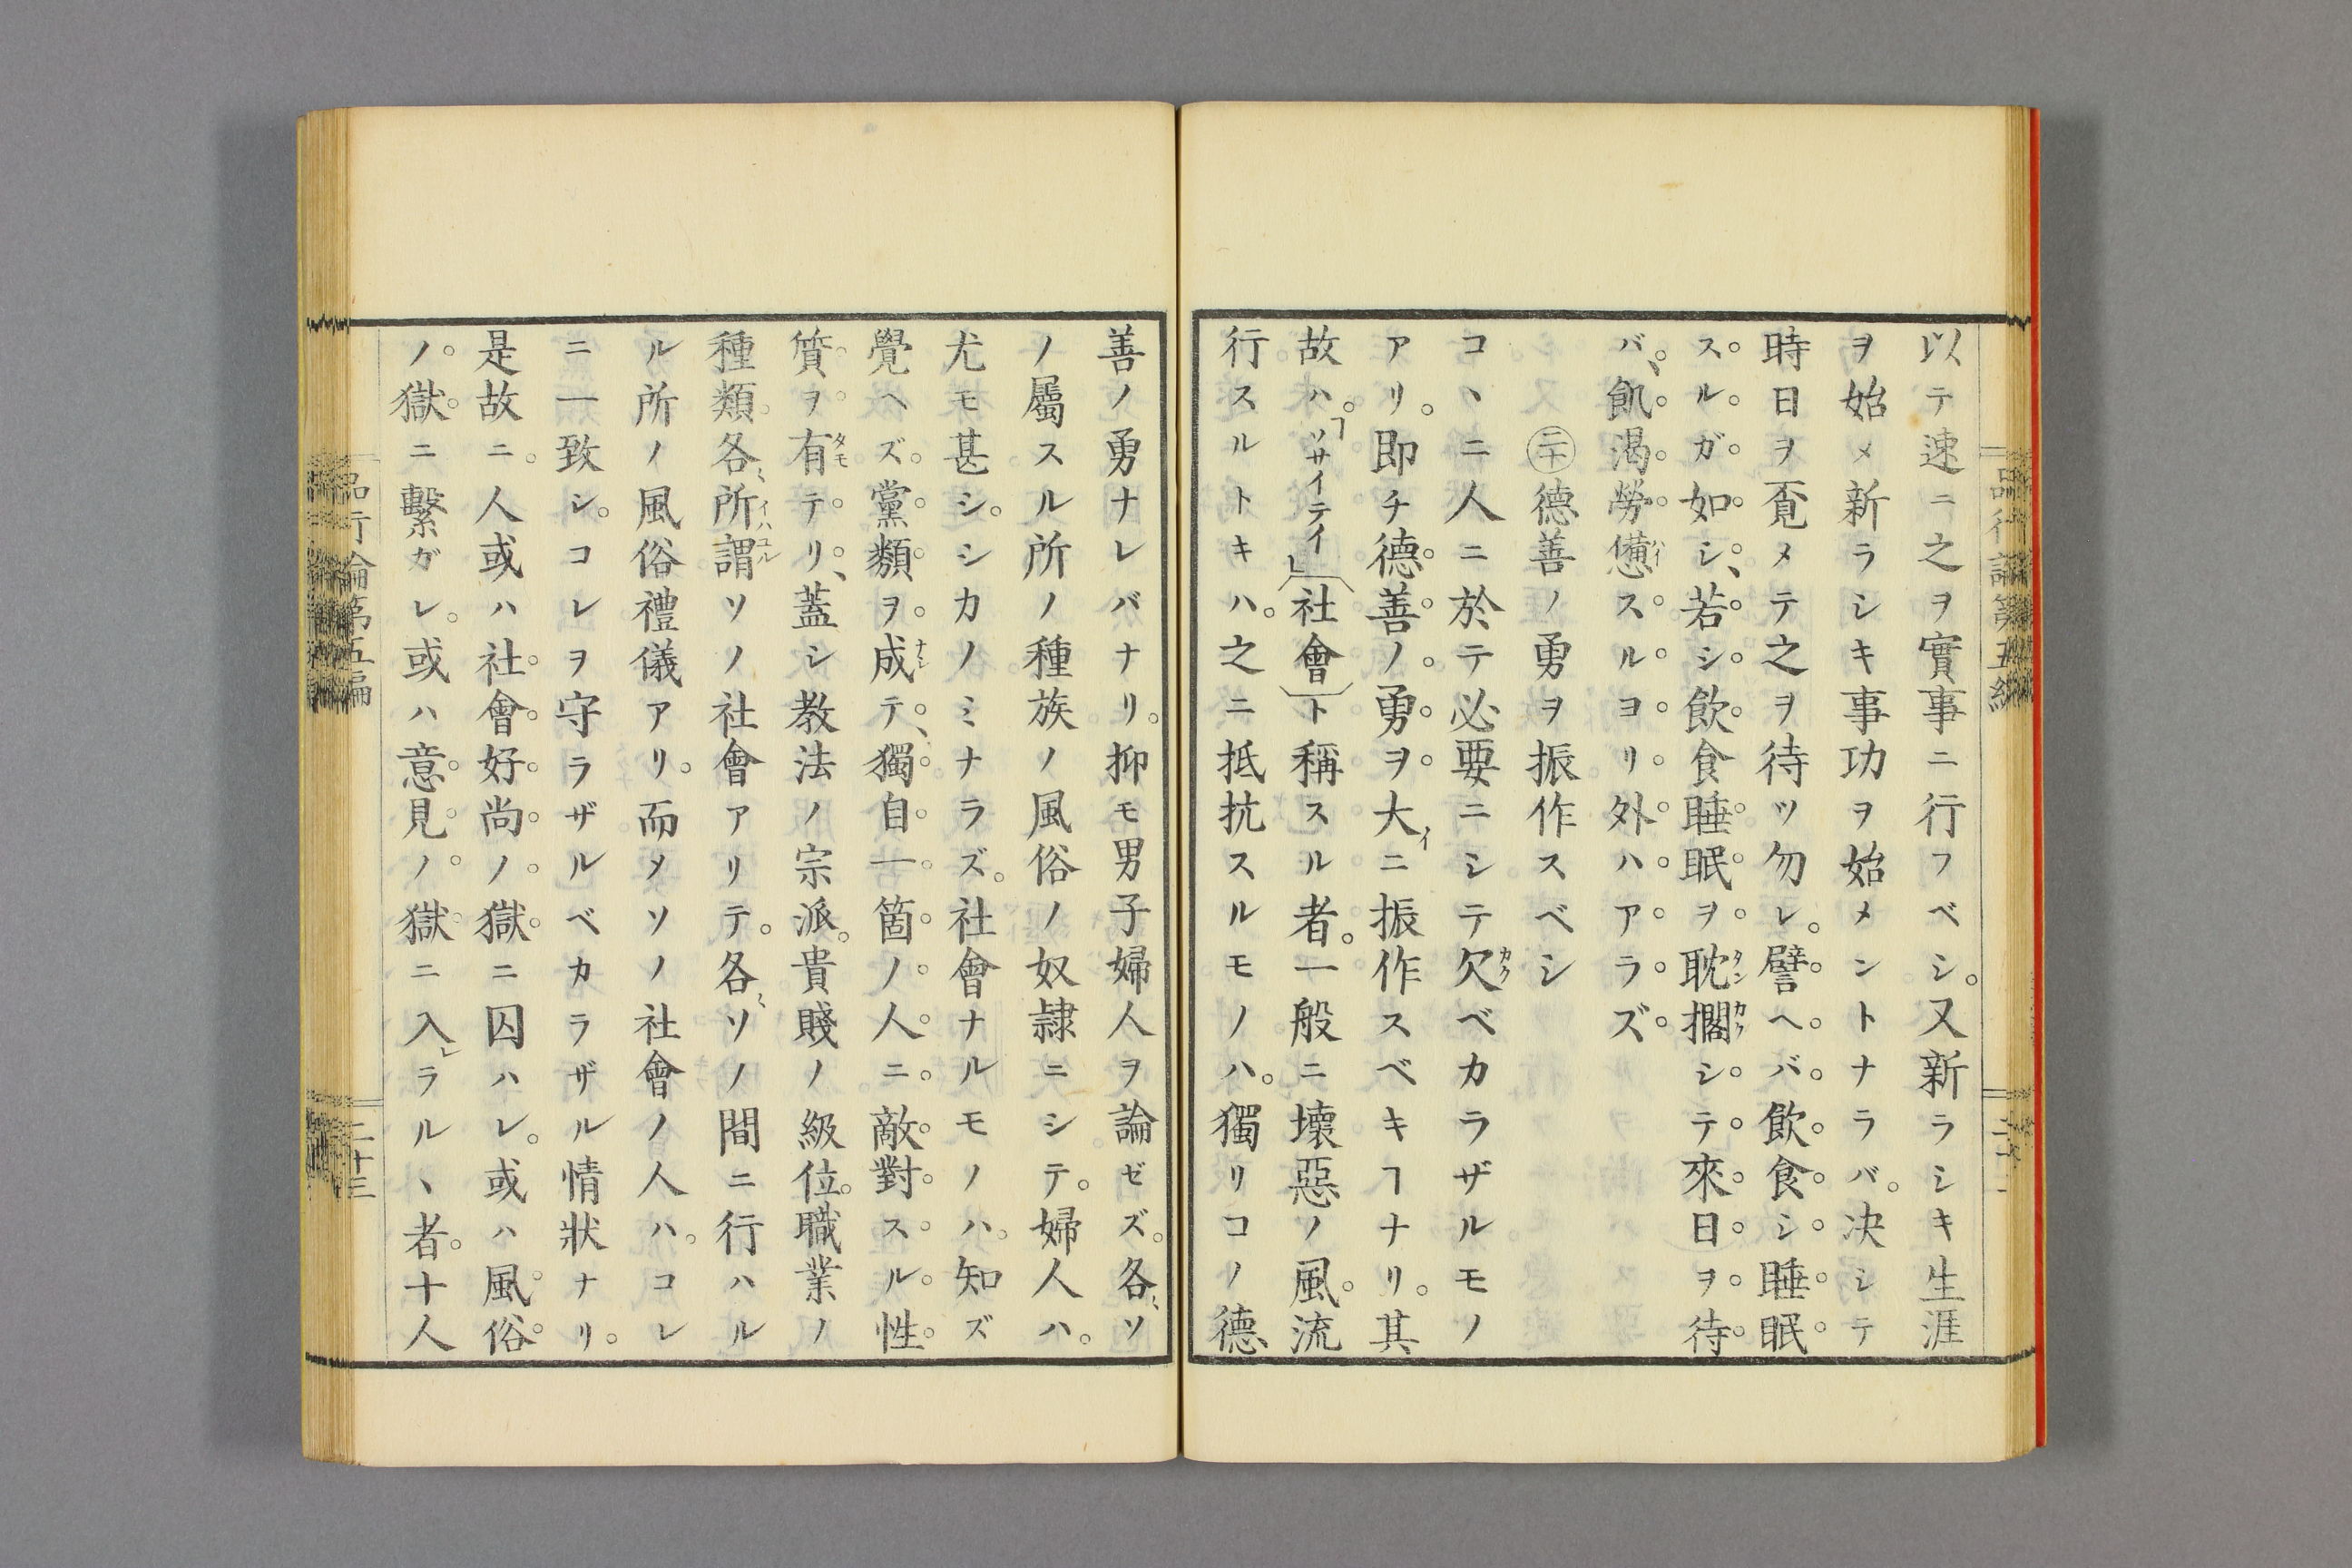 以テ速ニ之ヲ實事ニ行フベシ。又新ラシキ生涯
ヲ始メ新ラシキ事功ヲ始メントナラバ。决シテ
時日ヲ覔メテ之ヲ待ツ勿レ。譬ヘバ飲食シ睡眠
スルガ如シ、若シ飲食睡眠ヲ耽擱シテ來日ヲ待
バ、飢渇勞憊スルヨリ外ハアラズ
㊁十 德善ノ勇ヲ振作スベシ
コヽニ人ニ於テ必要ニシテ欠ベカラザルモノ
アリ。即チ德善ノ勇ヲ大ニ振作スベキヿナリ。其
故ハ。「ソサイテイ」〔社會〕ト稱スル者。一般ニ壞惡ノ風流
行スルトキハ。之ニ抵抗スルモノハ。獨リコノ德
善ノ勇ナレバナリ。抑モ男子婦人ヲ論ゼズ。各〻ソ
ノ屬スル所ノ種族ノ風俗ノ奴隷ニシテ。婦人ハ。
尤モ甚シ。シカノミナラズ。社會ナルモノハ。知ズ
覺ヘズ。黨類ヲ成テ、獨自一箇ノ人ニ敵對スル性
質ヲ有テリ、蓋シ教法ノ宗派。貴賤ノ級位。職業ノ
種類各〻所謂ソノ社會アリテ。各〻ソノ間ニ行ハル
ル所ノ風俗禮儀アリ。而メソノ社會ノ人ハ。コレ
ニ一致シ。コレヲ守ラザルベカラザル情狀ナリ。
是故ニ。人或ハ社會好尚ノ獄ニ囚ハレ。或ハ風俗
ノ獄ニ繫ガレ。或ハ意見ノ獄ニ入ラルヽ者。十人
品行論第五編
二十三